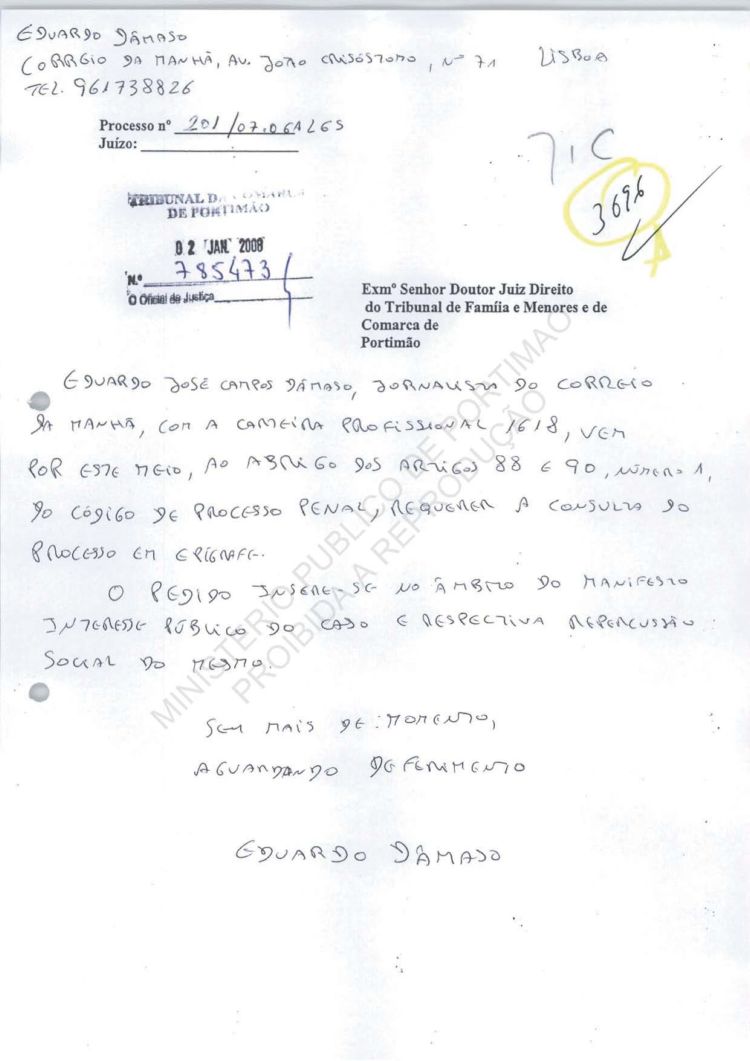 EDUARDO DÂMASO
CORREIO DA MANHÃ, AV. JOÃO CRISÓSTOMO, Nº 71 LISBOA
TEL. 961738826
Processo nº 201/07.0GALGS
Juízo:
JIC
3696
TRIBUNAL DA COMARCA
DE PORTIMÃO
02 JAN 2008
N.º 785473
O Oficial de Justiça
Exmº Senhor Doutor Juiz Direito
do Tribunal de Famíia e Menores e de
Comarca de
Portimão
EDUARDO JOSÉ CAMPOS DÂMASO, JORNALISTA DO CORREIO
DA MANHÃ, COM A CARTEIRA PROFISSIONAL 1618, VEM
POR ESTE MEIO, AO ABRIGO DOS ARTIGOS 88 E 90, NÚMERO 1,
DO CÓDIGO DE PROCESSO PENAL, REQUERER A CONSULTA DO
PROCESSO EM EPÍGRAFE.
O PEDIDO INSERE-SE NO ÂMBITO DO MANIFESTO
INTERESSE PÚBLICO DO CASO E RESPECTIVA REPERCUSSÃO
SOCIAL DO MESMO.
SEM MAIS DE MOMENTO,
AGUARDANDO DEFERIMENTO
EDUARDO DÂMASO
MINISTÉRIO PUBLICO DE PORTIMAO
PROIBIDA A REPRODUÇÃO